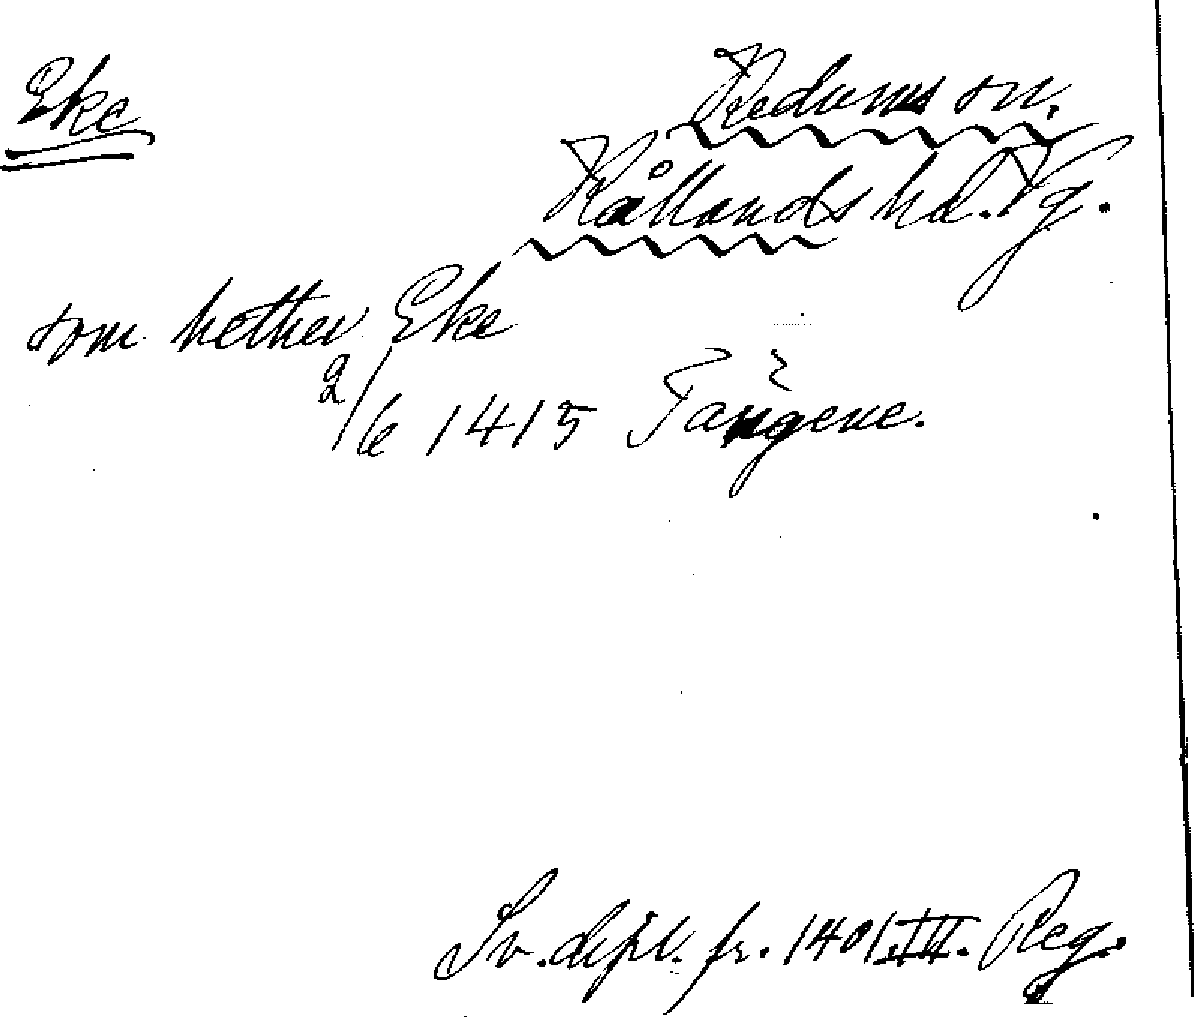 Eke
Kedums sn.
Kållands hd. Vg.
som hether Eke
2/6 1415 Tängene.
Sv. dipl. fr. 1401 III. Reg.